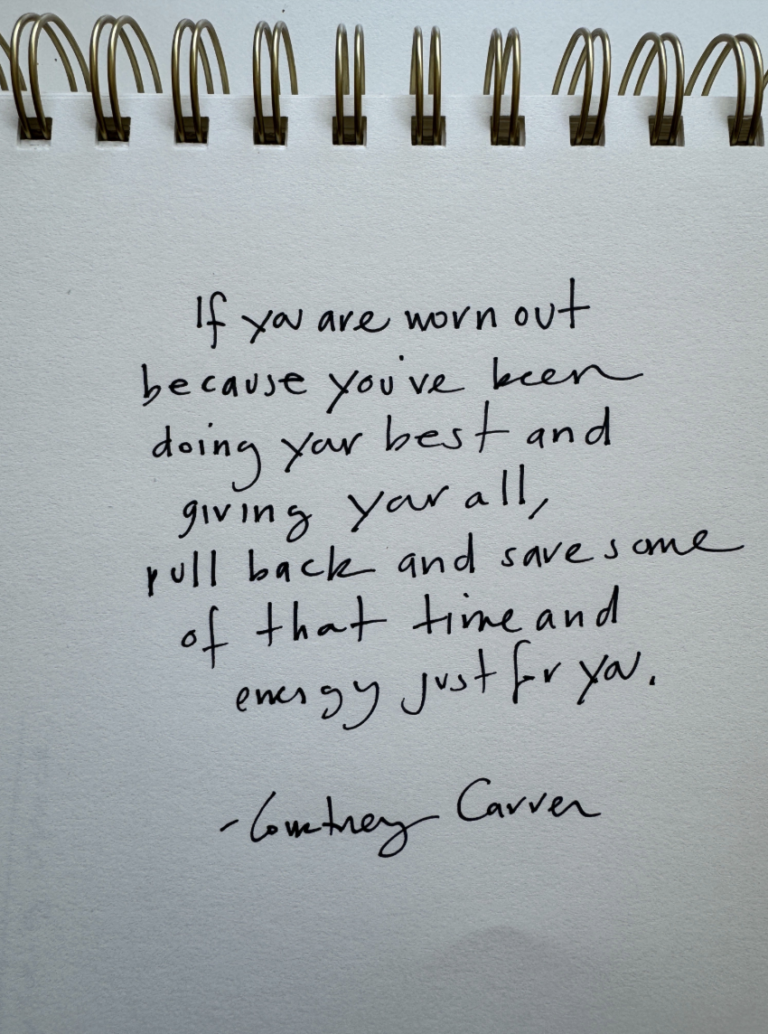 If you are worn out
because you've been
doing your best and
giving your all,
pull back and save some
of that time and
energy just for you.
-Courtney Carver